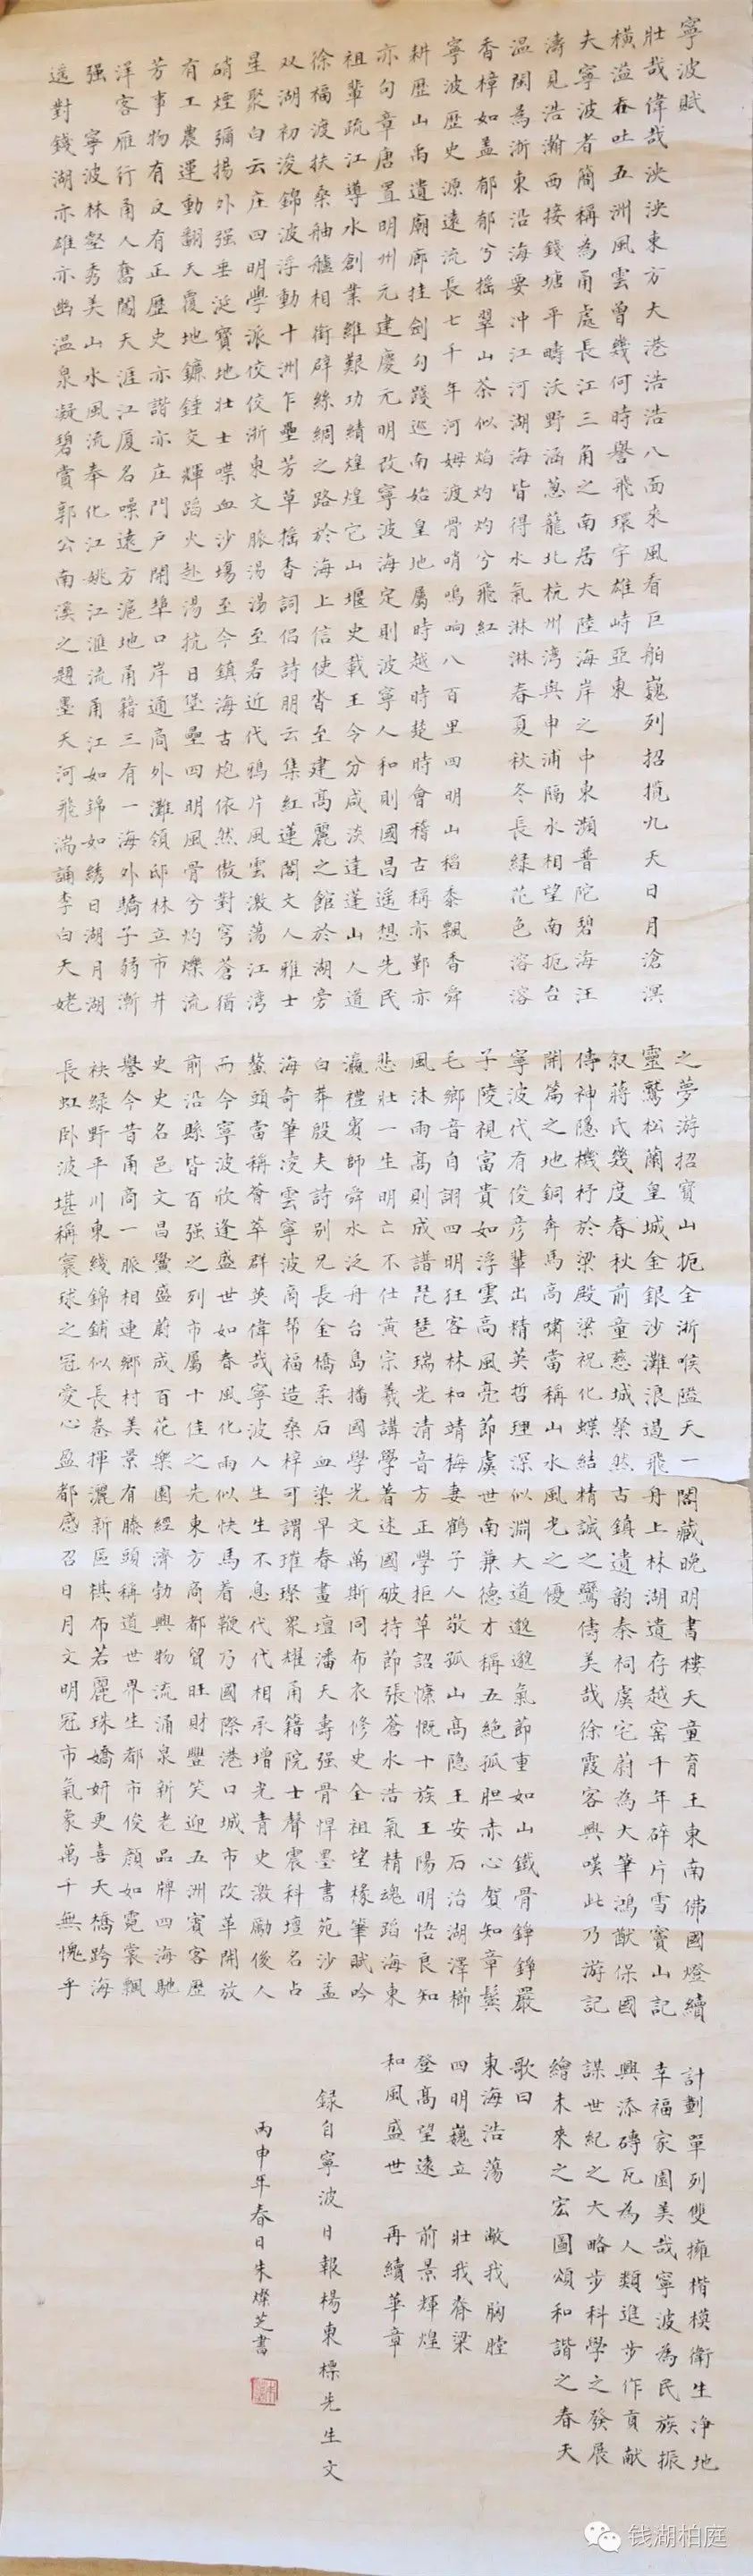 寧波賦
壯哉偉哉泱泱東方大港浩浩八面來風看巨舶巍列招攬九天日月滄溟
橫溢吞吐五洲風雲曾幾何時譽飛環宇雄峙亞東
夫寧波者簡稱為甬處長江三角之南居大陸海岸之中東瀕普陀碧海汪
濤見浩瀚西接錢塘平疇沃野涵蔥蘢北杭州灣與申浦隔水相望南扼台
溫閩為浙東沿海要冲江河湖海皆得水氣淋淋春夏秋冬長綠花色溶溶
香樟如蓋郁郁兮摇翠山茶似焰灼灼兮飛紅
寧波歷史源遠流長七千年河姆渡骨哨鳴响八百里四明山稻黍飄香舜
耕歷山禹遺廟廊挂劍句踐巡南始皇地屬時越時楚時會稽古稱亦鄞亦
亦句章唐置明州元建慶元明改寧波海定則波寧人和則國昌遥想先民
祖輩疏江導水創業維艱功績煌煌它山堰史載王令分咸淡達蓬山人道
徐福渡扶桑舳艫相銜辟絲綢之路於海上信使沓至建高麗之館於湖旁
双湖初浚錦波浮動十洲乍壘芳草摇香詞侣詩朋云集紅蓮閣文人雅士
星聚白云庄四明學派佼佼浙東文脈湯湯至若近代鴉片風雲激蕩江湾
硝煙彌揚外强垂涎寶地壮士喋血沙場至今鎮海古炮依然傲對穹蒼猶
有工農運動翻天覆地鐮錘交輝蹈火赴湯抗日堡壘四明風骨兮灼爍流
芳事物有反有正歷史亦諧亦庄門户開埠口岸通商外灘領邸林立市井
洋客雁行甬人奮闖天涯江厦名噪遠方滬地甬籍三有一海外驕子弱漸
强 寧波林壑秀美山水風流奉化江姚江滙流甬江如錦如綉日湖月湖
遥對錢湖亦雄亦幽温泉凝碧賞郭公南溪之題墨天河飛湍誦李白天姥
之夢游招寶山扼全浙喉隘天一閣藏晚明書樓天童育王東南佛國燈續
靈鷲松蘭皇城金銀沙灘浪遏飛舟上林湖遺存越窑千年碎片雪竇山記
叙蔣氏幾度春秋前童慈城燦然古鎮遺韵秦祠虞宅蔚為大筆鴻猷保國
傳神隱機杼於梁殿梁祝化蝶結精誠之鴛儔美哉徐霞客興嘆此乃游記
開篇之地銅奔馬高嘯當稱山水風光之優
寧波代有俊彦輩出精英哲理深似淵大道邈邈氣節重如山鐵骨錚錚嚴
子陵視富貴如浮雲高風亮節虞世南兼德才稱五絶孤胆赤心賀知章鬓
毛鄉音自詡四明狂客林和靖梅妻鶴子人敬孤山高隱王安石治湖澤櫛
風沐雨高則成譜琵琶瑞光清音方正學拒草詔慷慨十族王陽明悟良知
悲壯一生明亡不仕黄宗羲講學著述國破持節張蒼水浩氣精魂蹈海東
瀛禮賓師舜水泛舟台島播國學光文萬斯同布衣修史全祖望椽筆賦吟
白莽殷夫詩别兄長金橋柔石血染早春畫壇潘天壽强骨悍墨書苑沙孟
海奇筆凌雲寧波商帮福造桑梓可謂璀璨衆耀甬籍院士聲震科壇名占
鰲頭當稱薈萃群英偉哉寧波人生生不息代代相承增光青史激勵後人
而今寧波欣逢盛世如春風化雨似快馬着鞭乃國際港口城市改革開放
前沿縣皆百强之列市屬十佳之先東方商都貿旺財豐笑迎五洲賓客歷
史史名邑文昌黌盛蔚成百花樂園經濟勃興物流涌泉新老品牌四海馳
譽今昔甬商一脈相連鄉村美景有滕頭稱道世界生都市俊顔如霓裳飄
袂绿野平川東綫錦鋪似長卷揮灑新區棋布若麗珠嬌妍更喜天橋跨海
長虹卧波堪稱寰球之冠愛心盈都感召日月文明冠市氣象萬千無愧乎
計劃單列雙擁楷模衛生净地
幸福家園美哉寧波為民族振
興添磚瓦為人類進步作貢献
謀世紀之大略步科學之發展
繪未來之宏圖頌和諧之春天
歌曰
東海浩蕩 敞我胸膛
四明巍立 壯我脊梁
登高望遠 前景輝煌
和風盛世 再續華章
録自寧波日報楊東標先生文
丙申年春日朱燦芝書
钱湖柏庭